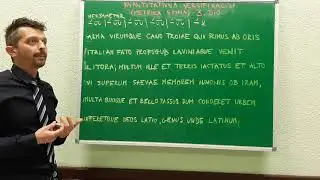 KVANTITATIVNA VERSIFIKACIJA
HEKSAMETAR
ARMA VIRUMQUE CANO TROIAE QUI PRIMUS AB ORIS
ITALIAM FATO PROFUGUS LAVINIAQUE VENIT
LITORA, MULTUM ILLE ET TERRIS IACTATUS ET ALTO
VI SUPERUM SAEVAE MEMOREM IUNONIS OB IRAM,
MULTA QUOQUE ET BELLO PASSUS DUM CONDERET URBEM
INFERRETQUE DEOS LATIO, GENUS UNDE LATINUM,